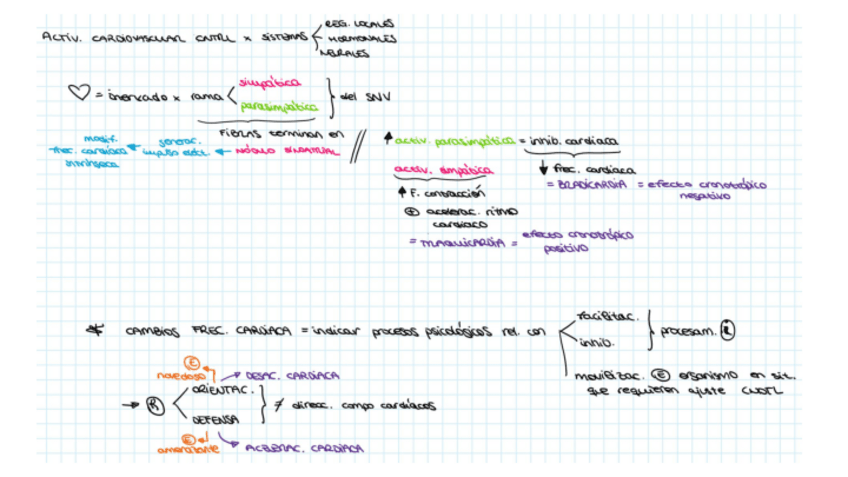 ACTIV. CARDIOVASCULAR CNTRL x SISTEMAS
REG. LOCALES
HORMONALES
NEURALES
♡ = inervado x rama
simpática
parasimpática
del SNV
FIBRAS terminan en
NÓDULO SINOATRIAL
generac.
impulso eléct.
modif.
frec. cardiaca
intrínseca
↑ activ. parasimpática = inhib. cardiaca
↓ frec. cardiaca
= BRADICARDIA = efecto cronotrópico
negativo
activ. simpática
↑ F. contracción
⊕ acelerac. ritmo
cardiaco
= TAQUICARDIA = efecto cronotrópico
positivo
* CAMBIOS FREC. CARDÍACA = indicar procesos psicológicos rel. con
facilitac.
inhib.
procesam. Ⓡ
movilizac. Ⓔ organismo en sit.
que requieren ajuste CNDTL
Ⓔ
novedoso
→ DESAC. CARDÍACA
→ Ⓡ
ORIENTAC.
DEFENSA
≠ direcc. campo cardíacos
Ⓔ
amenazante
→ ACELERAC. CARDÍACA